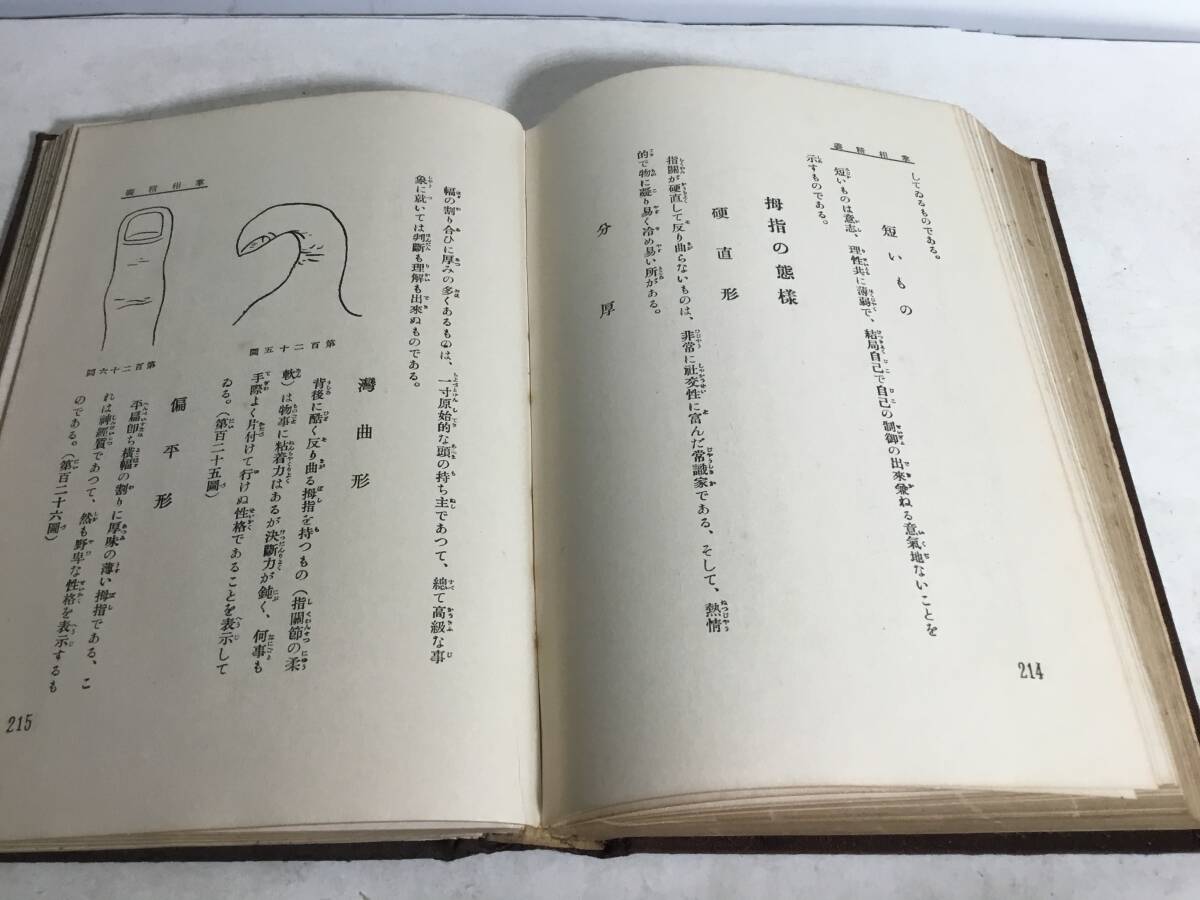 掌相精義
してゐるものである。
短いもの
短いものは意志、理性共に薄弱で、結局自己で自己の制御の出來兼ねる意氣地ないことを
示すものである。
拇指の態樣
硬直形
指關が硬直して反り曲らないものは、非常に社交性に富んだ常識家である、そして、熱情
的で物に凝り易く冷め易い所がある。
分厚
214
幅の割り合ひに厚みの多くあるものは、一寸原始的な頭の持ち主であつて、總て高級な事
象に就いては判斷も理解も出來ぬものである。
灣曲形
背後に酷く反り曲る拇指を持つもの（指關節の柔
軟）は物事に粘着力はあるが決斷力が鈍く、何事も
手際よく片付けて行けぬ性格であることを表示して
ゐる。（第百二十五圖）
偏平形
平扁卽ち橫幅の割りに厚味の薄い拇指である、こ
れは神經質であつて、然も野卑な性格を表示するも
のである。（第百二十六圖）
第百二十五圖
第百二十六圖
掌相精義
215